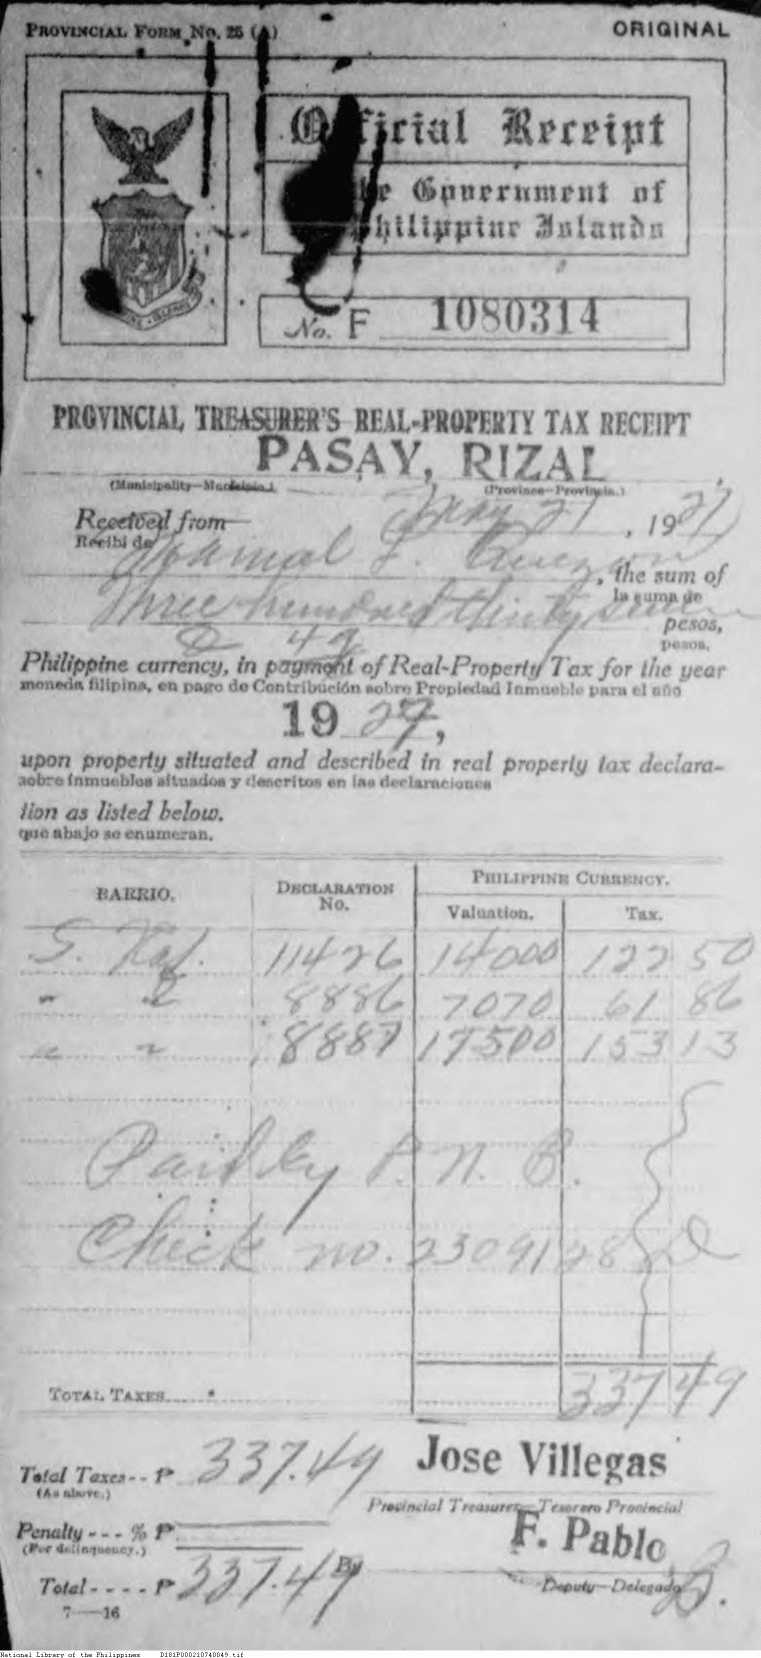 PROVINCIAL FORM No. 25 (A)
ORIGINAL
Official Receipt
The Government of
Philippine Islands
No. F 1080314
PROVINCIAL TREASURER'S REAL-PROPERTY TAX RECEIPT
PASAY, RIZAL
(Municipality—Municipio.) (Province—Provincia.)
May 21, 1927
Received from
Recibi de
Manuel L. Quezon, the sum of
la suma de
Three hundred thirty seven pesos,
pesos,
& 49
Philippine currency, in payment of Real-Property Tax for the year
moneda filipina, en pago de Contribución sobre Propiedad Inmueble para el año
1927,
upon property situated and described in real property tax declara-
sobre inmuebles situados y descritos en las declaraciones
tion as listed below.
que abajo se enumeran.
BARRIO. DECLARATION No. PHILIPPINE CURRENCY.
Valuation. Tax.
S. Raf. 11426 14000 122 50
" " 8886 7070 61 86
" " 8887 17500 153 13
Paid by P. N. B.
Check no. 2309128
TOTAL TAXES 337 49
Total Taxes -- ₱ 337.49
(As above.)
Jose Villegas
Provincial Treasurer—Tesorero Provincial
Penalty - - - % ₱
(For delinquency.)
F. Pablo
Total - - - - ₱ 337.49
By
Deputy—Delegado
7—16
National Library of the Philippines D181P000210740049.tif